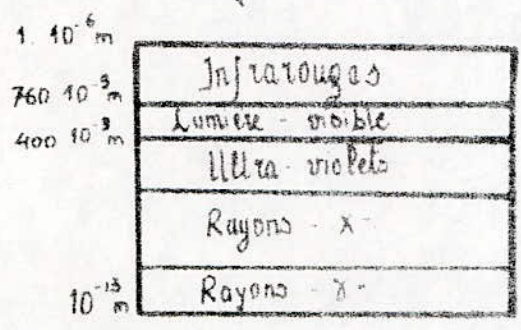 1. 10⁻⁶ m
Infrarouges
760 10⁻⁹ m
Lumiere - visible
400 10⁻⁹ m
Ultra-violets
Rayons - X -
Rayons - γ -
10⁻¹³ m